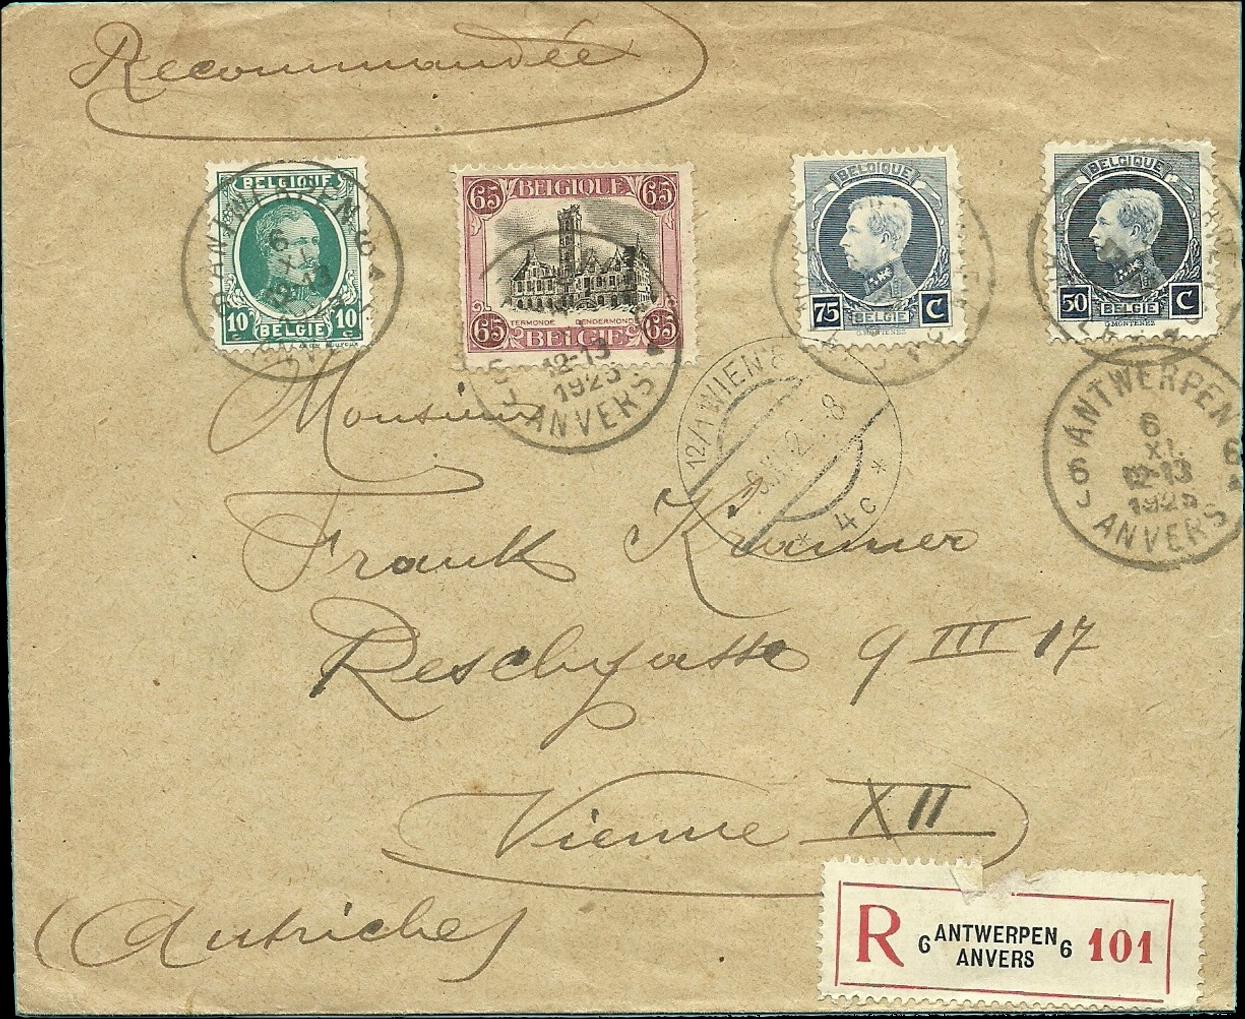 Recommandée
BELGIQUE
10 BELGIE 10
ANTWERPEN
6
12-13
65 BELGIQUE 65
TERMONDE DENDERMONDE
65 BELGIE 65
12-13
1925
ANVERS
BELGIQUE
75 BELGIE C
G. MONTENEZ
BELGIQUE
50 BELGIE C
G. MONTENEZ
6 ANTWERPEN 6
6
XI.
12-13
1925
J ANVERS
12/1 WIEN
8
* 4c *
Monsieur
Frank Kramer
Reschgasse 9 III 17
Vienne XII
(Autriche)
R 6 ANTWERPEN 6 101
ANVERS